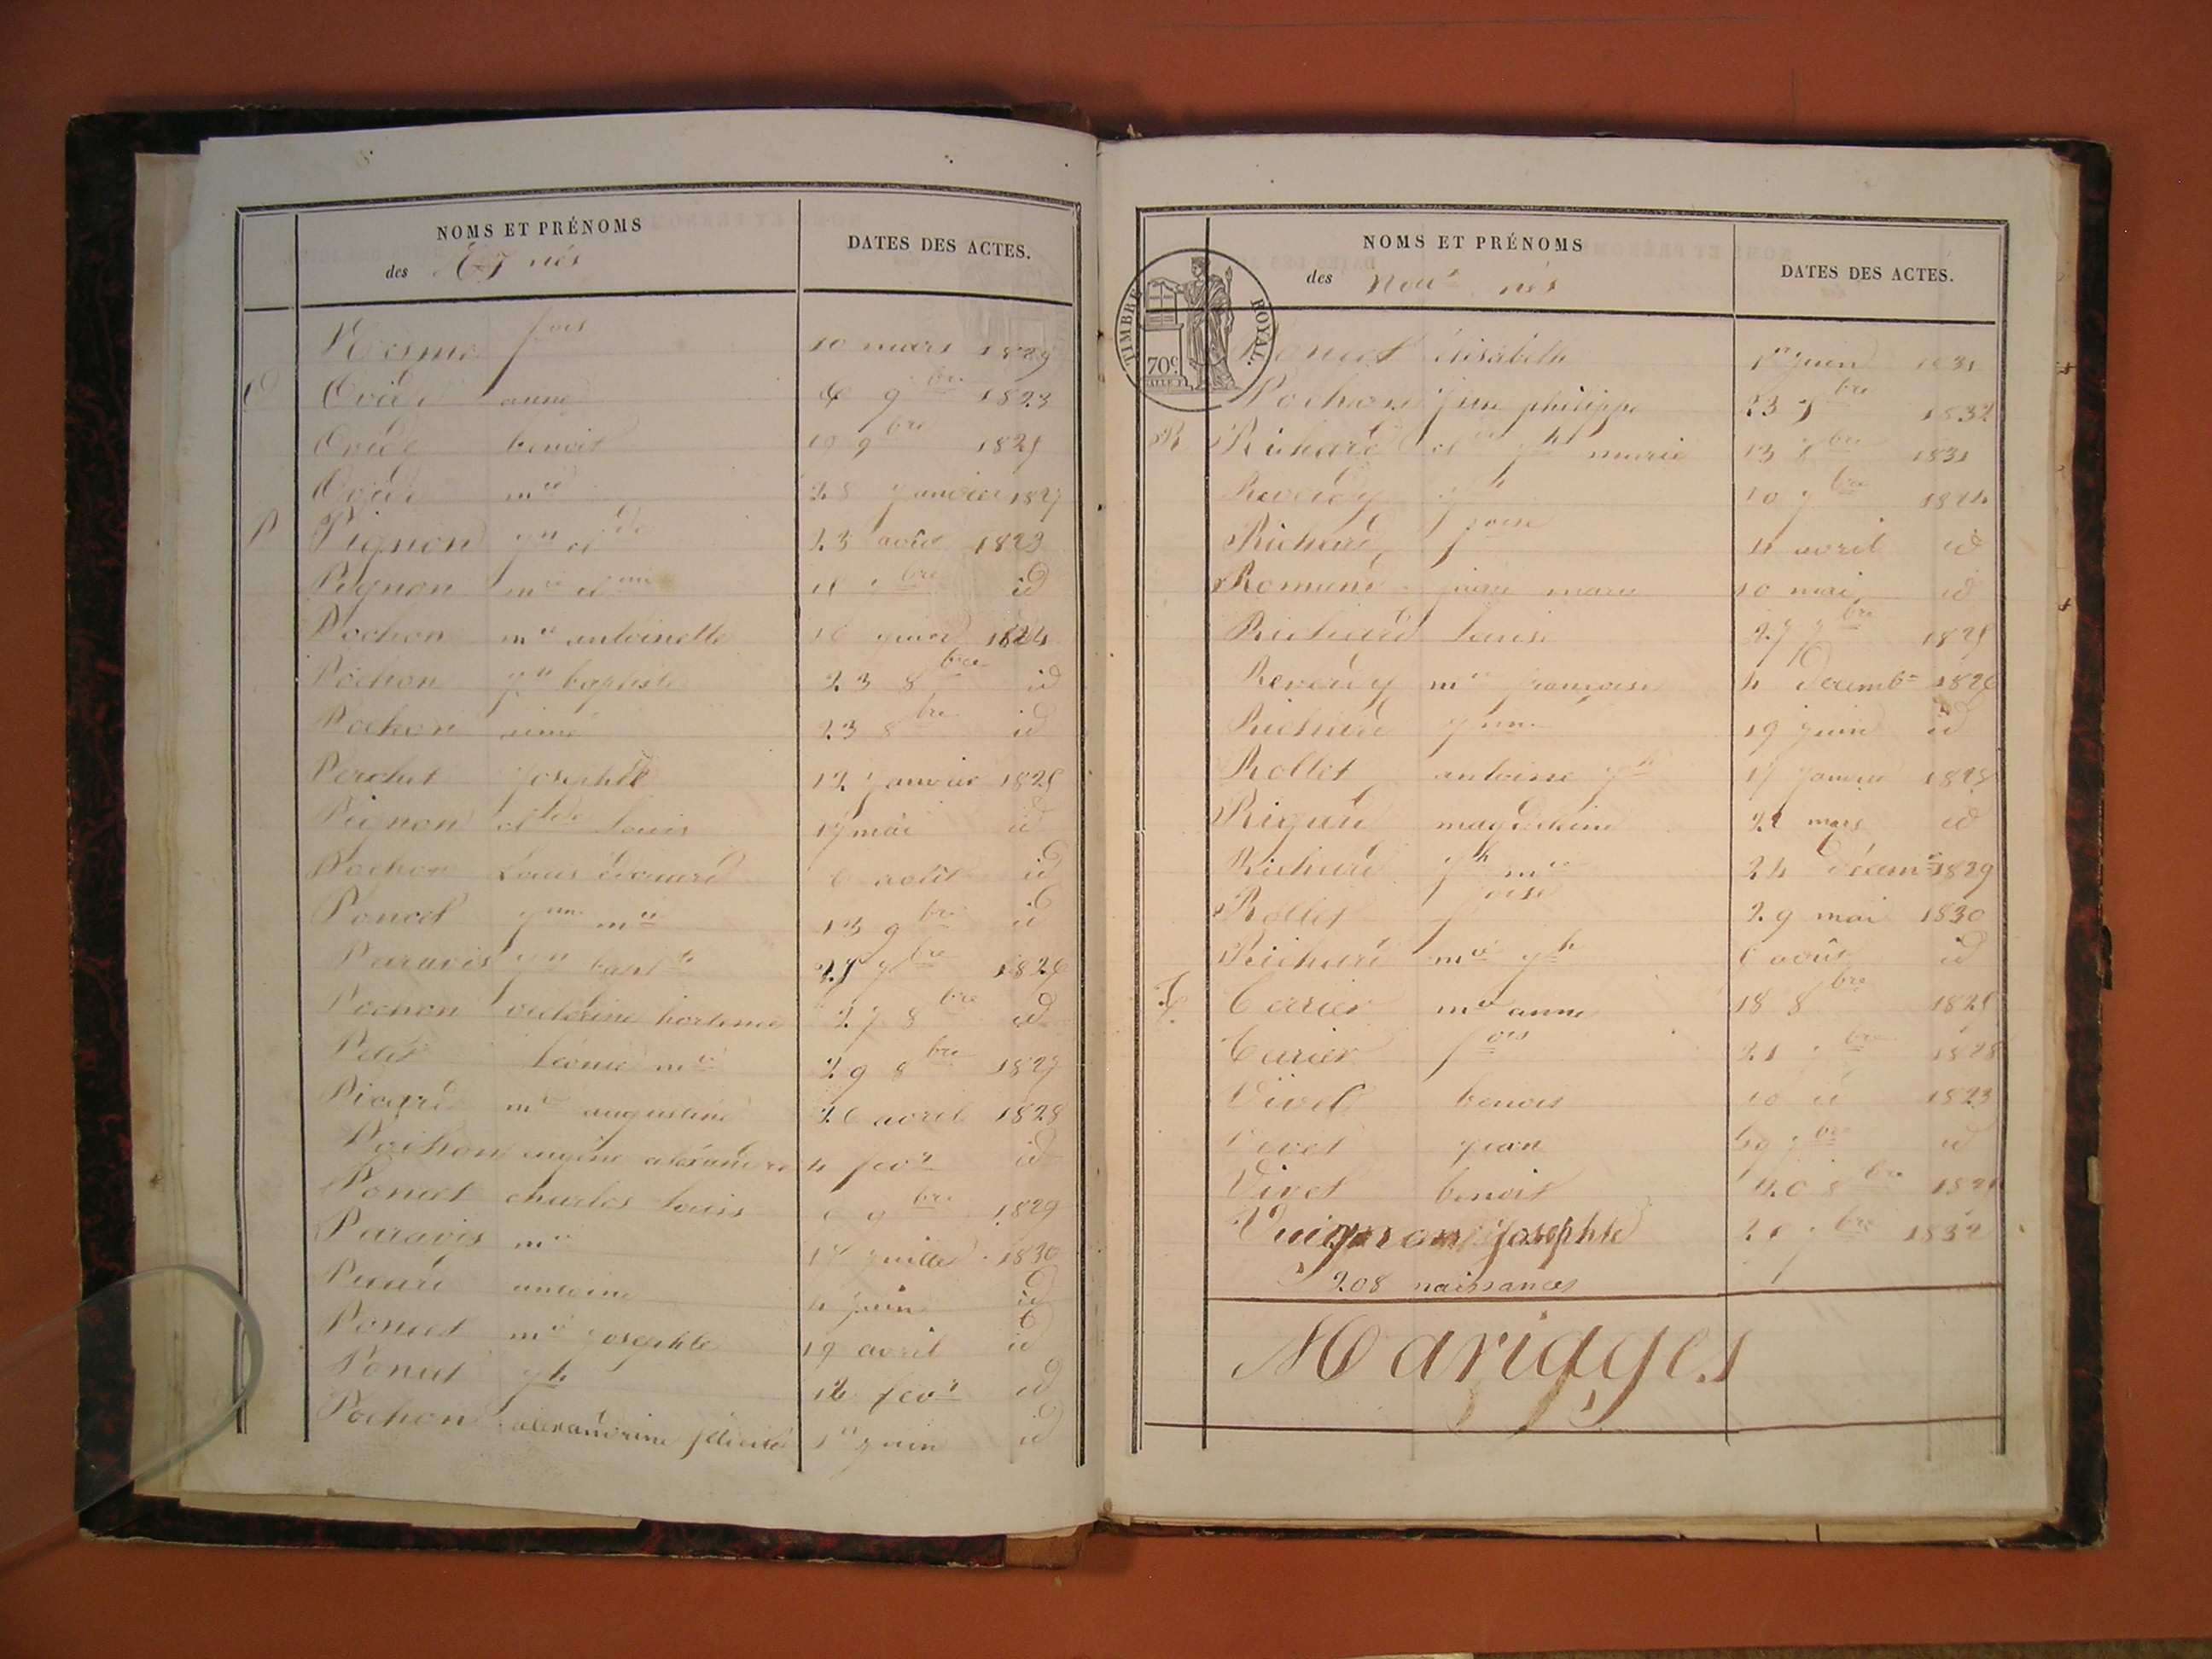 NOMS ET PRÉNOMS
des nés
DATES DES ACTES.
fois 10 mars 1829
Ovide anne 9bre 1823
Ovide benoit 19 9bre 1825
Ovide mie 28 janvier 1827
P Pignon jn cl de 23 août 1823
Pignon mie bre id
Pochon mie antoinette 16 1824
Pochon jn baptiste 23 8bre id
Pochon aimé 23 8bre id
Perchet josephte 12 janvier 1825
Pignon cl de louis 17 mai id
Pochon Louis édouard 6 août id
Poncet jnne mie 13 9bre id
Paravis jn bapt te 25 7bre 1826
Pochon victorine hortence 27 8bre id
Petit léonie mie 29 8bre 1827
Picard mie augustine 26 avril 1828
Pochon eugène alexandre 4 fevr id
Poncet charles louis 6 9bre 1829
Paravis mie juillet 1830
antoine 4 juin id
Poncet mie josephte 19 avril id
Poncet jh 12 fevr id
Pochon alexandrine félicité 1er juin id
NOMS ET PRÉNOMS
des nouvx nés
DATES DES ACTES.
TIMBRE ROYAL.
70c.
Poncet élisabeth 1er juin 1831
Pochon jean philippe 23 7bre 1832
R Richard marie 13 8bre 1831
Reverdy jh 10 7bre 1824
Richard foise 4 avril id
Romand jean marie 10 mai id
Richard louise 27 7bre 1825
Reverdy mie françoise 4 décembre 1826
Richard jnne 19 juin id
Rollet antoine jh 17 janvier 1828
Rigaud magdeleine 21 mars id
Richard jh mie 24 décemb 1829
Rollet foise 29 mai 1830
Richard mie jh 6 août id
mie anne 18 8bre 1825
fois 21 bre 1828
Vivet benois 10 id 1823
Vivet jean bre id
Vivet benoit 20 8bre
josephte bre 1832
208 naissances
Mariages